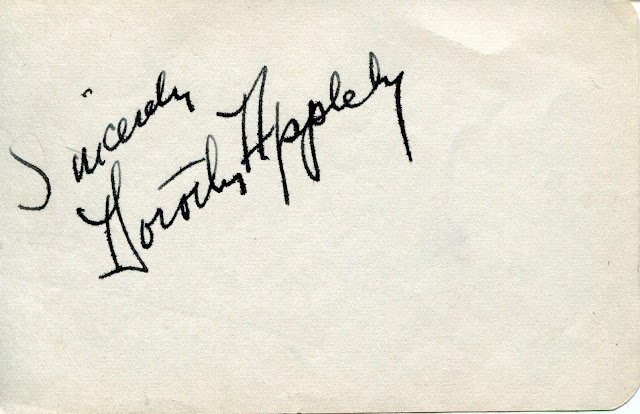 Sincerely
Dorothy Appleby